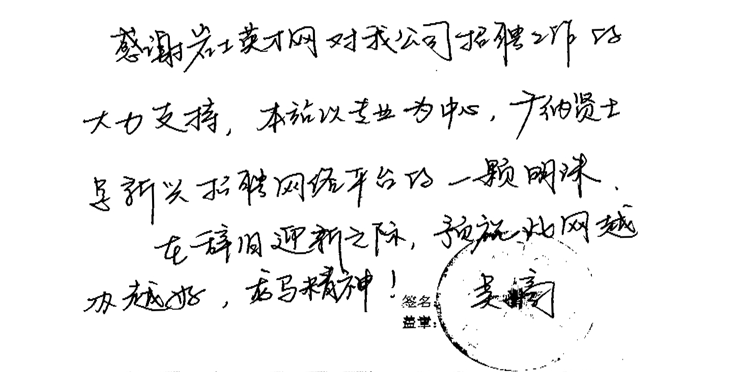 感谢岩土英才网对我公司招聘工作的
大力支持，本站以专业为中心，广纳贤士
是新兴招聘网络平台的一颗明珠。
在辞旧迎新之际，预祝此网越
办越好，龙马精神！
签名：
盖章：